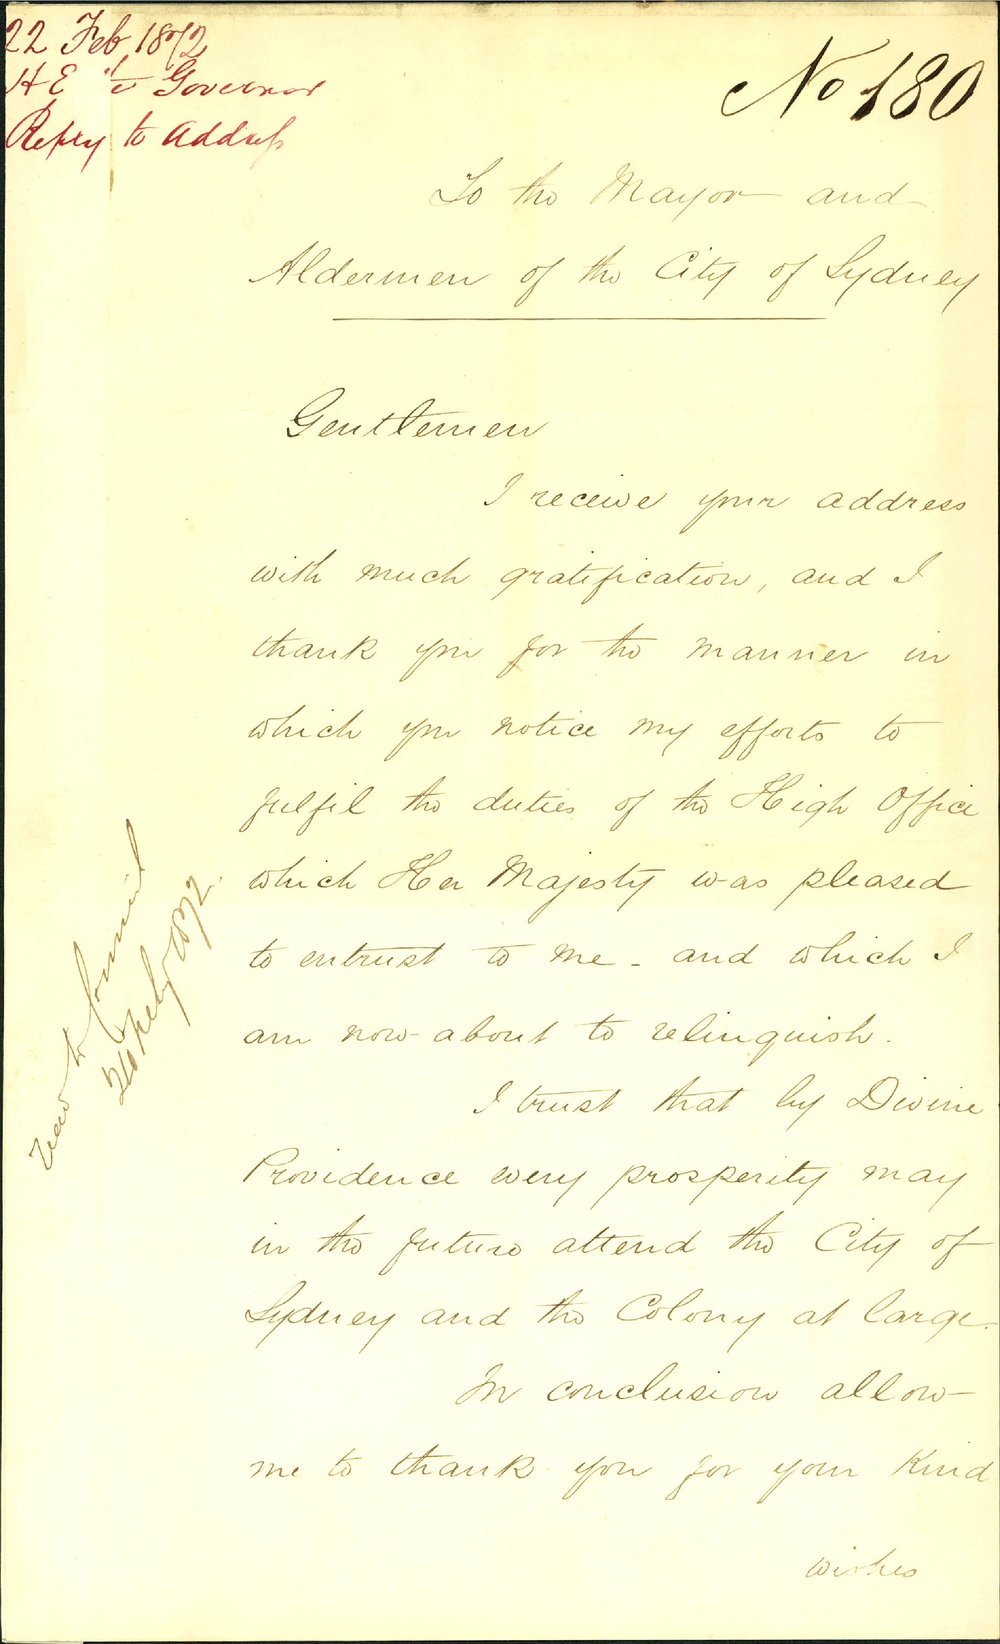 22 Feb 1872
H E the Governor
Reply to Address
No 180
To the Mayor and
Aldermen of the City of Sydney
Gentlemen
I receive your address
with much gratification, and I
thank you for the manner in
which you notice my efforts to
fulfil the duties of the High Office
which Her Majesty was pleased
to entrust to me - and which I
am now about to relinquish.
I trust that by Divine
Providence every prosperity may
in the future attend the City of
Sydney and the Colony at large.
In conclusion allow
me to thank you for your Kind
wishes
to Council
26 Feby 1872.